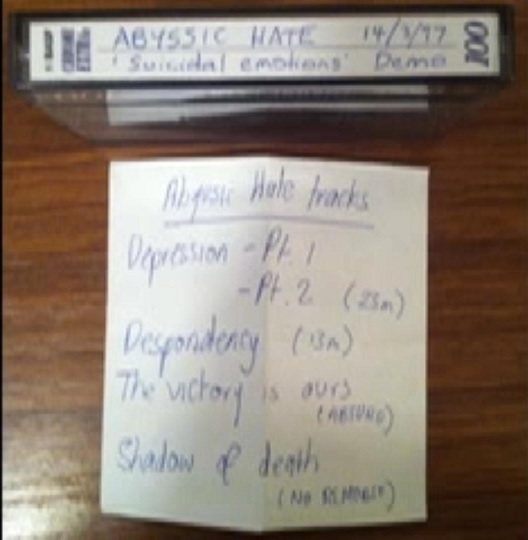 ABYSSIC HATE 14/3/97
'Suicidal emotions' Demo
100
Abyssic Hate tracks
Depression - Pt. 1
- Pt. 2 (23m)
Despondency (13m)
The victory is ours
(ABSURD)
Shadow of death
(NO REMORSE)